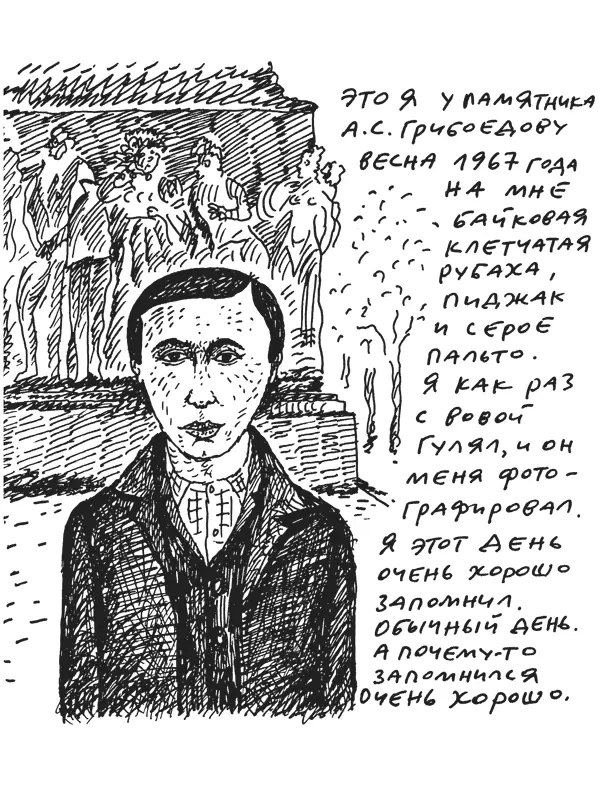 ЭТО Я У ПАМЯТНИКА
А.С. ГРИБОЕДОВУ
ВЕСНА 1967 ГОДА
НА МНЕ
БАЙКОВАЯ
КЛЕТЧАТАЯ
РУБАХА,
ПИДЖАК
И СЕРОЕ
ПАЛЬТО.
Я КАК РАЗ
С ВОВОЙ
ГУЛЯЛ, И ОН
МЕНЯ ФОТО-
ГРАФИРОВАЛ.
Я ЭТОТ ДЕНЬ
ОЧЕНЬ ХОРОШО
ЗАПОМНИЛ.
ОБЫЧНЫЙ ДЕНЬ.
А ПОЧЕМУ-ТО
ЗАПОМНИЛСЯ
ОЧЕНЬ ХОРОШО.